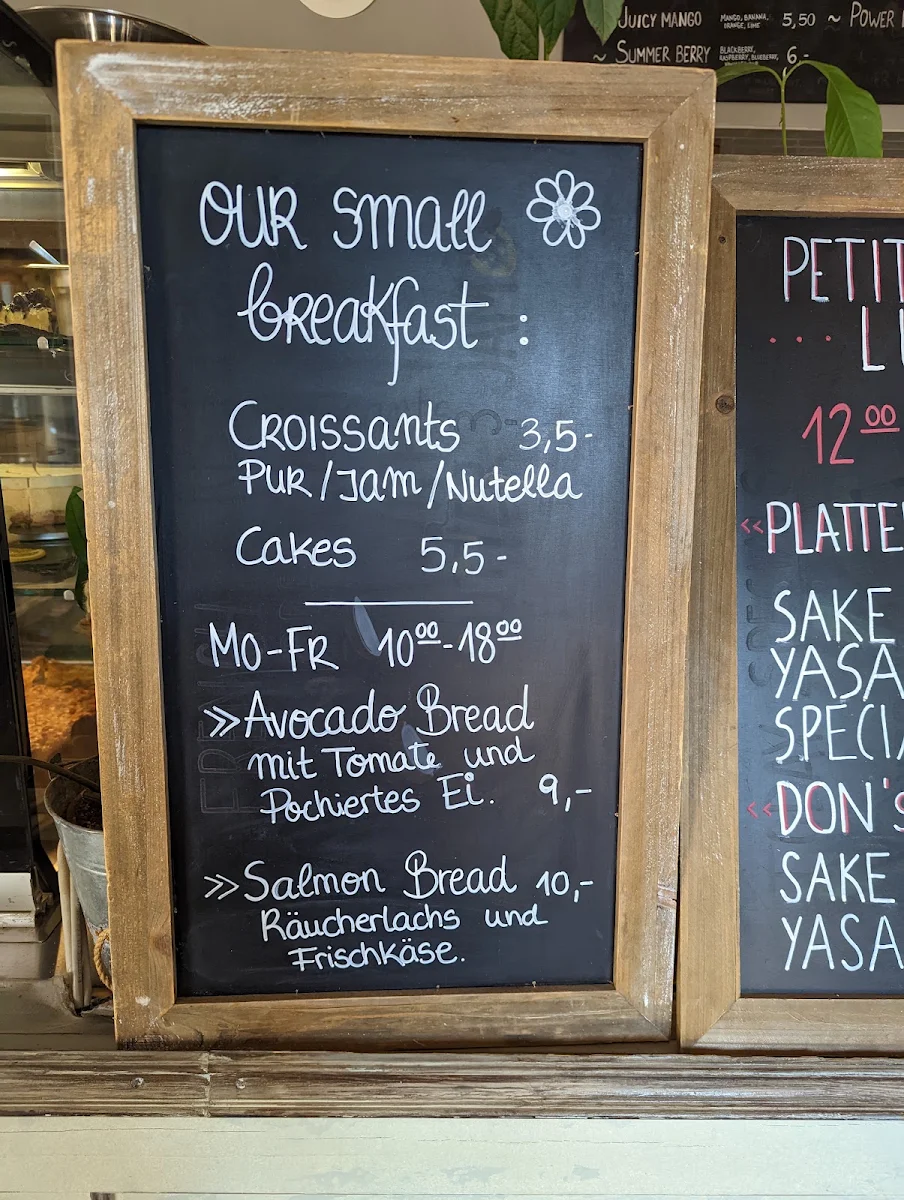 OUR small
breakfast :
Croissants 3,5-
Pur/Jam/Nutella
Cakes 5,5-
Mo-Fr 10⁰⁰-18⁰⁰
>> Avocado Bread
mit Tomate und
Pochiertes Ei. 9,-
>> Salmon Bread 10,-
Räucherlachs und
Frischkäse.
JUICY MANGO MANGO, BANANA, ORANGE, LIME 5,50 ~ POWER
~ SUMMER BERRY BLACKBERRY, RASPBERRY, BLUEBERRY, 6,-
PETIT
12⁰⁰
<<PLATTE
SAKE
YASA
SPECI
<<DON'S
SAKE
YASA